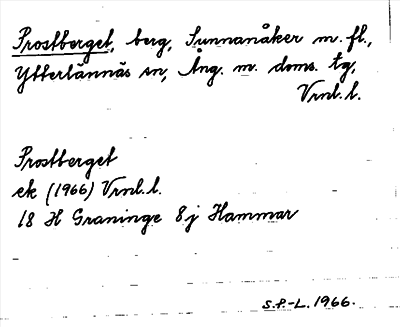 Prostberget, berg, Sunnanåker m. fl.,
Ytterlännäs sn, Ång. m. doms. tg,
Vrnl. l.
Prostberget
ek (1966) Vrnl. l.
18 H Graninge 8j Hammar
S.P.-L. 1966.